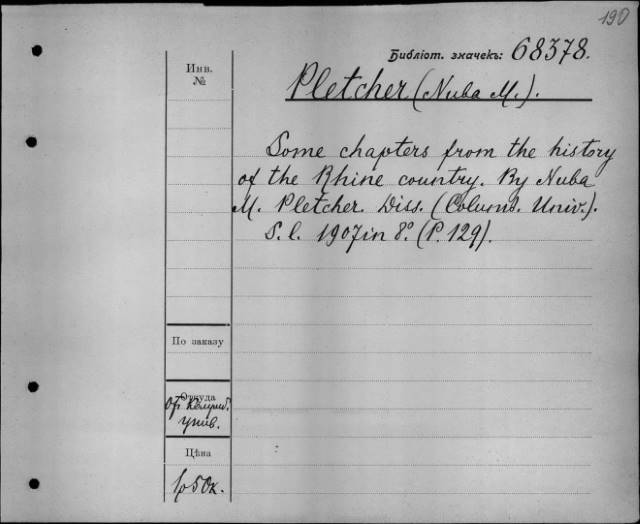 190
Библіот. значекъ: 68378.
Инв.
№
Pletcher (Nuba M.).
Some chapters from the history
of the Rhine country. By Nuba
M. Pletcher. Diss. (Columb. Univ.).
S. l. 1907 in 8°. (P. 129).
По заказу
Откуда
От Колумб.
унив.
Цѣна
1р 50к.